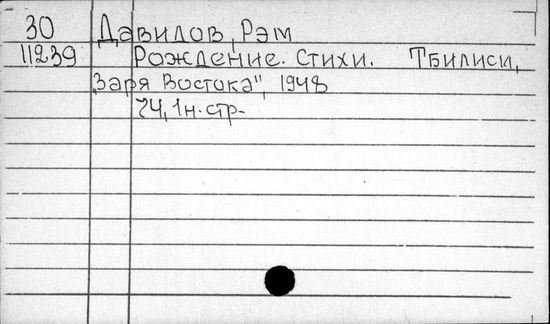 30 Давидов, Рэм
11239 Рождение. Стихи. Тбилиси,
„Заря Востока", 1948
74, 1н. стр-